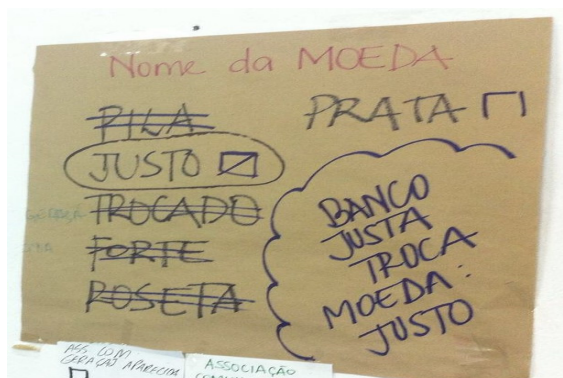 Nome da MOEDA
PILA
JUSTO
TROCADO
FORTE
ROSETA
PRATA
BANCO
JUSTA
TROCA
MOEDA:
JUSTO
ASS. COM
GERAÇÃO APARECIDA
ASSOCIAÇÃO